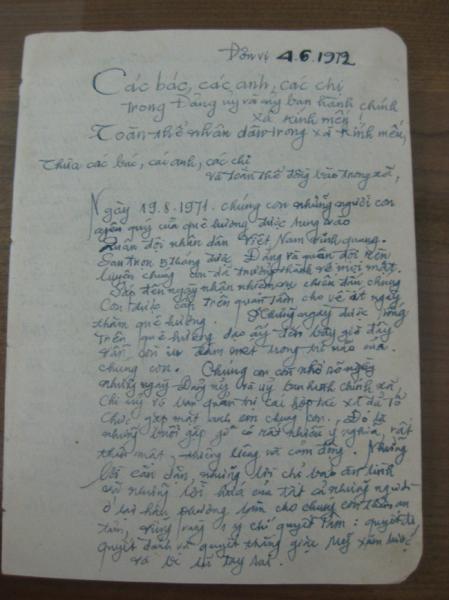 Đơn vị 4.6.1972
Các bác, các anh, các chị
trong Đảng ủy và ủy ban hành chính
xã kính mến!
Toàn thể nhân dân trong xã kính mến,
Thưa các bác, các anh, các chị
và toàn thể đồng bào trong xã,
Ngày 19.8.1971. chúng con những người con
yêu quý của quê hương được tung vào
Quân đội nhân dân Việt Nam vinh quang.
Sau tròn 5 tháng được Đảng và quân đội rèn
luyện chúng con đã trưởng thành về mọi mặt.
Sắp đến ngày nhận nhiệm vụ chiến đấu, chúng
con được cấp trên quan tâm cho về ít ngày
thăm quê hương. Những ngày được sống
trên quê hương dạo ấy đến bây giờ đây
vẫn còn in đậm nét trong trí não của
chúng con. Chúng con còn nhớ rõ ngày
những ngày Đảng ủy và uỷ ban hành chính xã,
chi uỷ và ban quản trị các hợp tác xã đã tổ
chức gặp mặt anh em chúng con. Đó là
những buổi gặp gỡ có rất nhiều ý nghĩa, rất
thân mật, thiêng liêng và cảm động. Những
lời căn dặn, những lời chỉ bảo ân tình
với những lời hứa của tất cả những người
ở lại hậu phương làm cho chúng con thêm an
tâm, vững vàng ý chí quyết tâm: quyết đi
quyết đánh và quyết thắng giặc Mỹ xâm lược
và bè lũ tay sai.